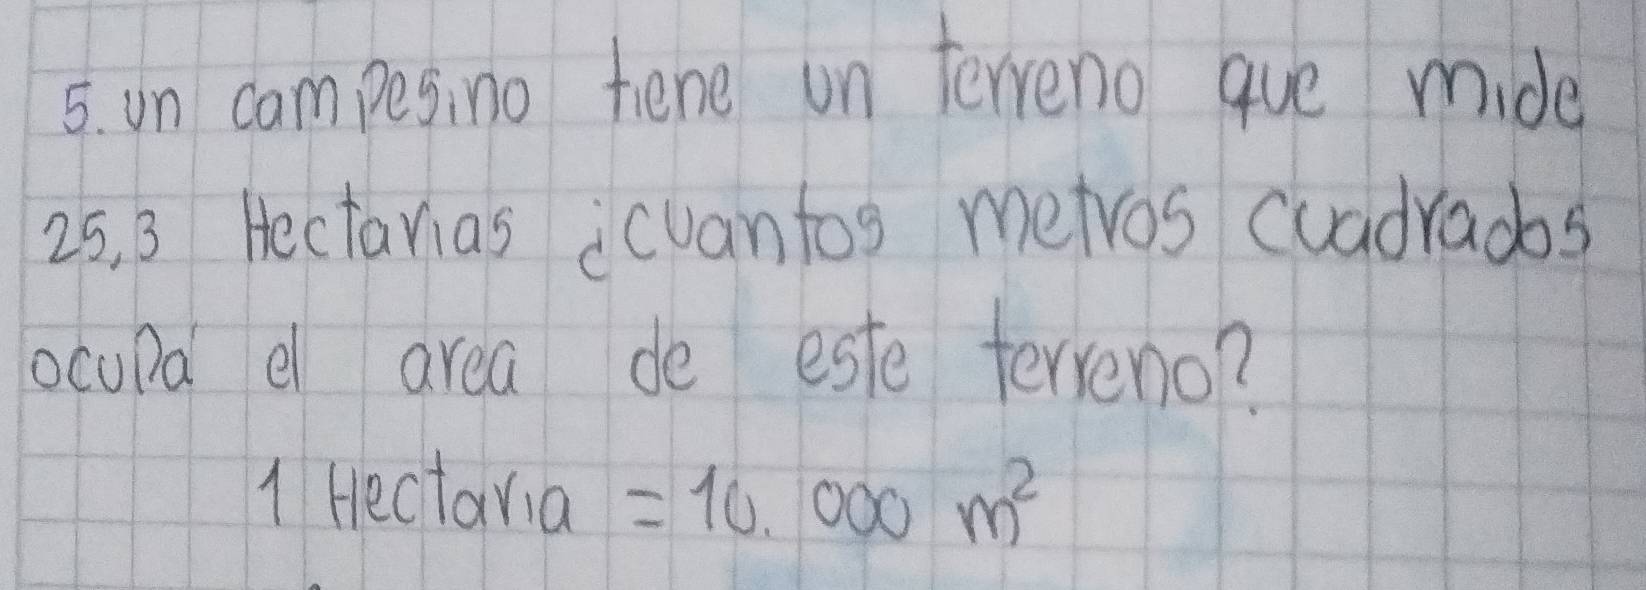 5. un campesino tiene un terreno que mide
25,3 Hectarias ¿cuantos metros cuadrados
ocupa el area de este terreno?
1 Hectaria = 10.000 m²